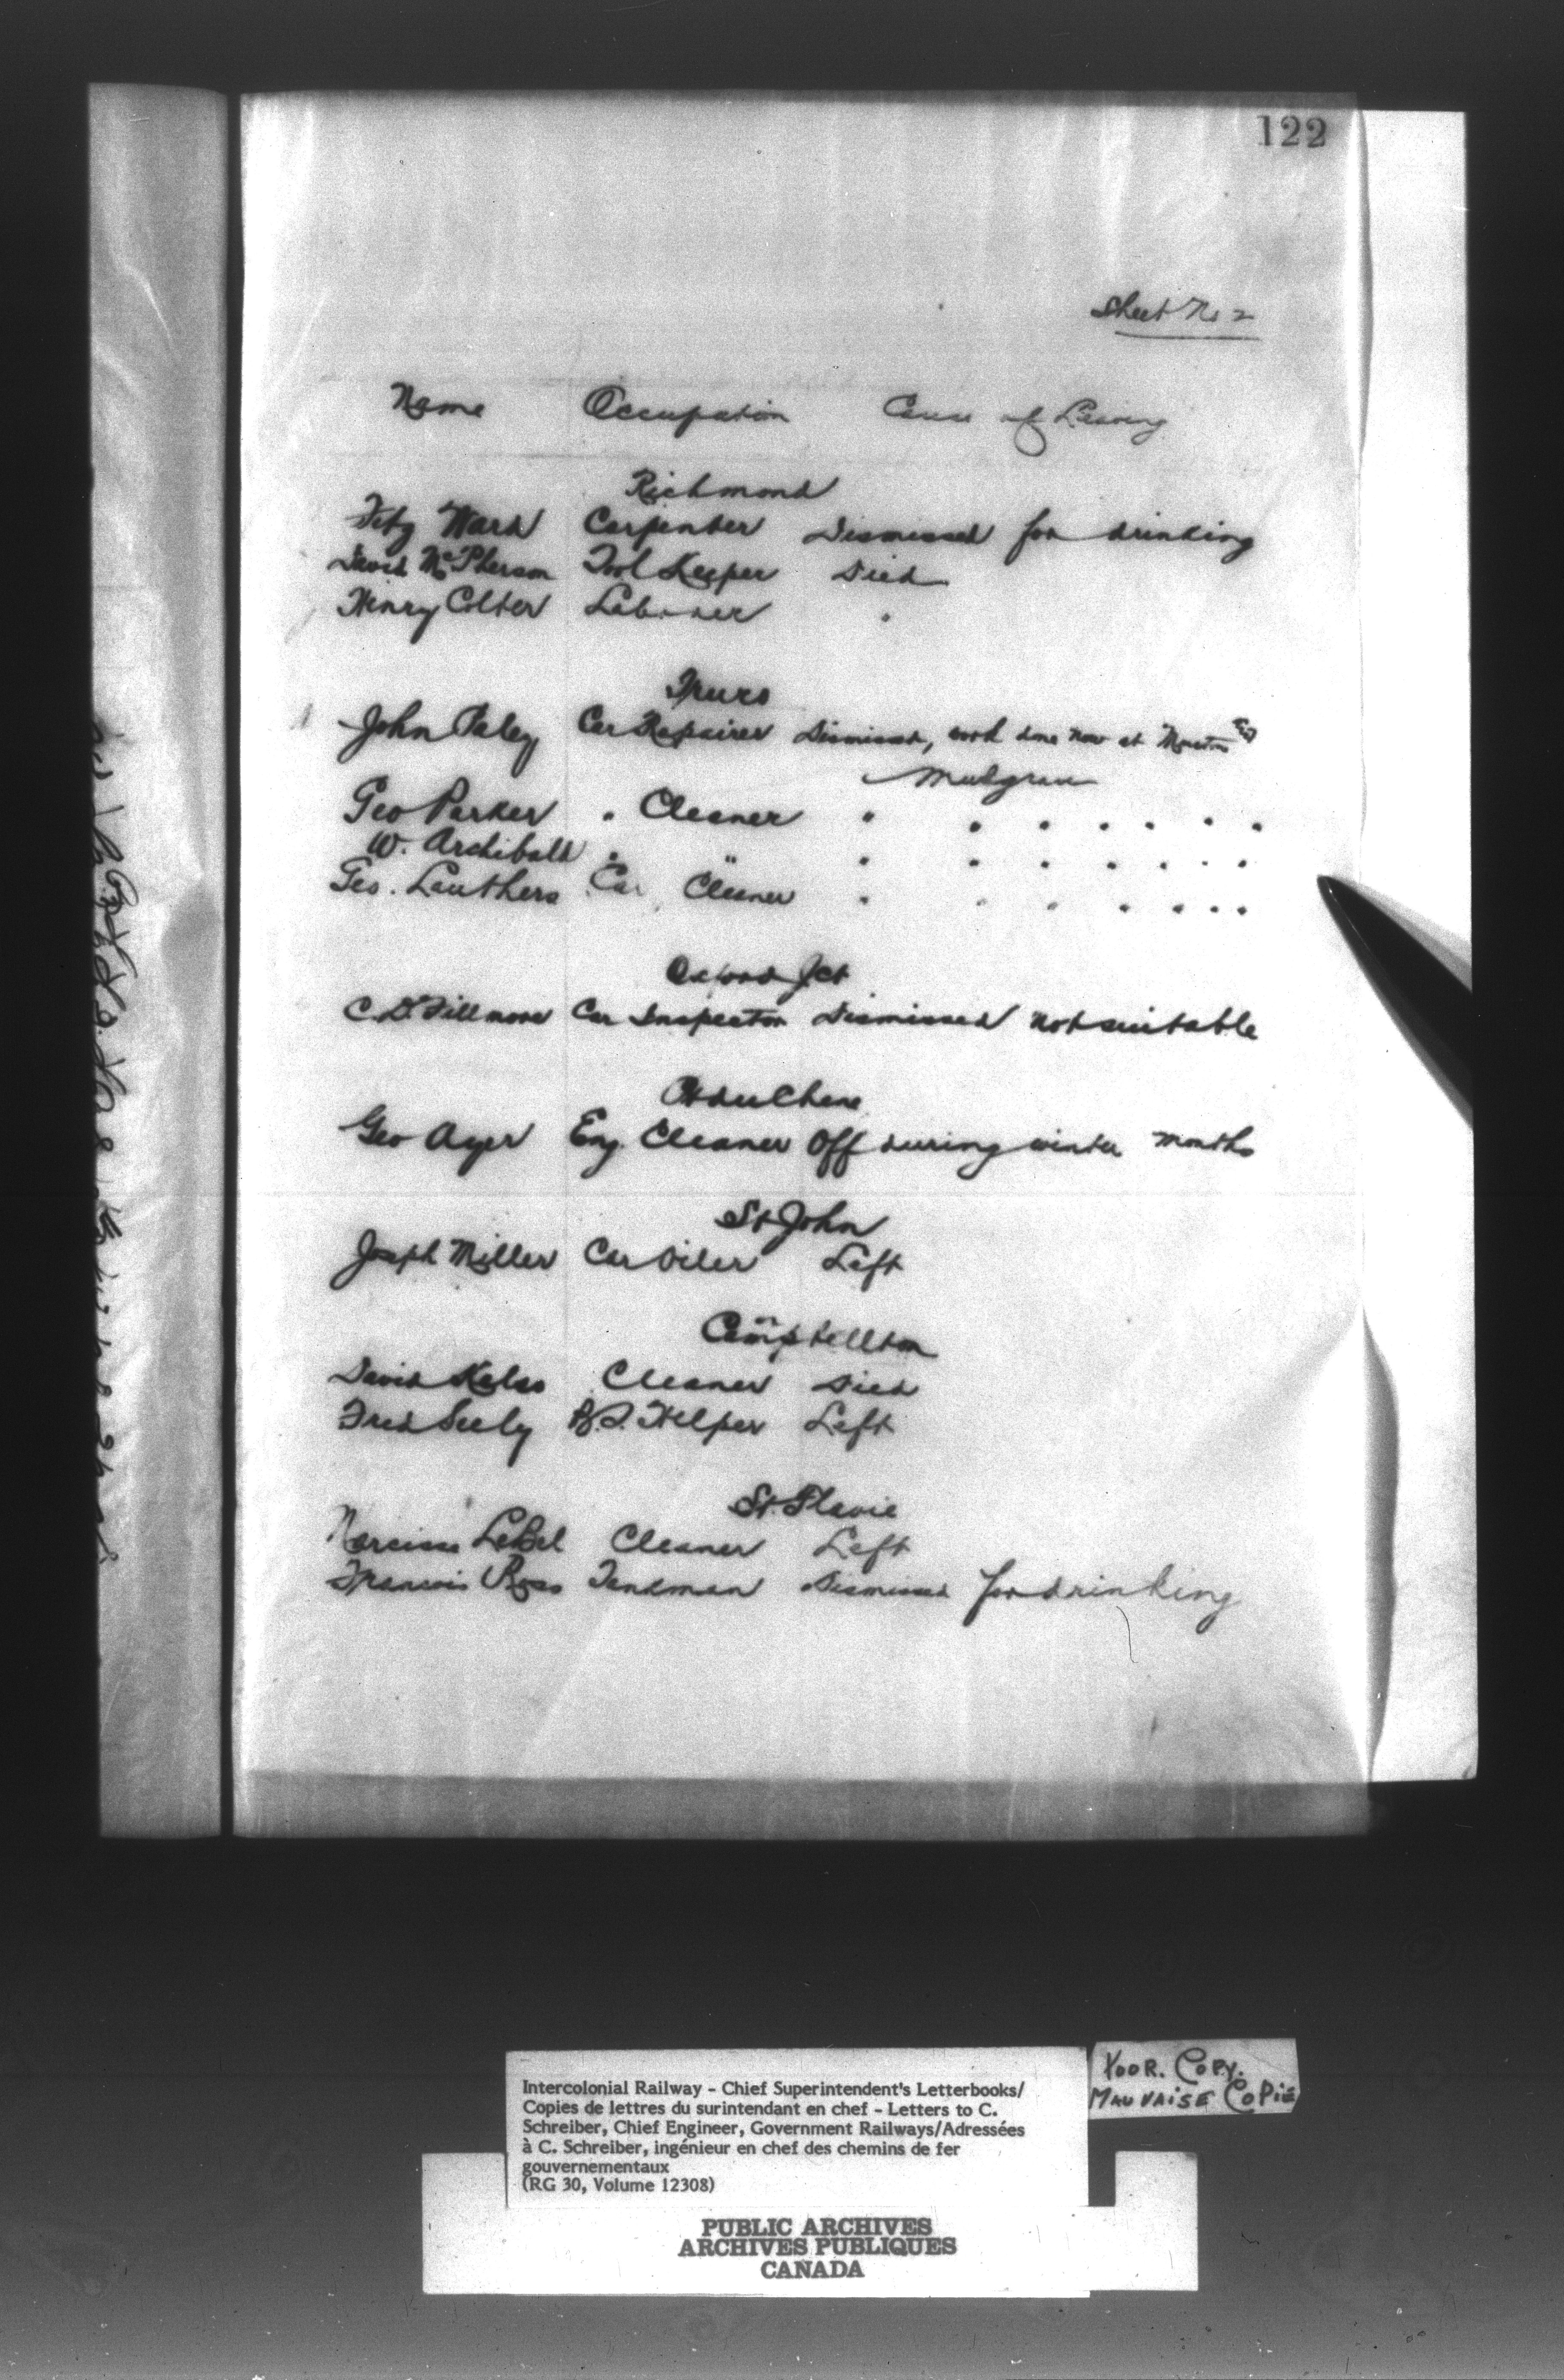 122
Sheet No 2
Name Occupation Cause of Leaving
Richmond
Fitz Ward Carpenter Dismissed for drinking
David McPherson Tool Keeper Died
Henry Colter Laborer "
Truro
John Paley Car Repairer Dismissed, work done now at Moncton &
Mulgrave
Geo Parker " Cleaner " " " " " " "
W. Archibald " " " " " " " " "
Geo. Lauthers Car Cleaner " " " " " " "
Oxford Jct
C.D. Fillmore Car Inspector Dismissed not suitable
Pt du Chene
Geo Ayer Eng. Cleaner Off during winter months
St John
Joseph Miller Car Oiler Left
Campbellton
David Kelso Cleaner Died
Fred Seely B.S. Helper Left
St. Flavie
Narcisse LeBel Cleaner Left
Francois Ross Tankman Dismissed for drinking
Intercolonial Railway - Chief Superintendent's Letterbooks/
Copies de lettres du surintendant en chef - Letters to C.
Schreiber, Chief Engineer, Government Railways/Adressées
à C. Schreiber, ingénieur en chef des chemins de fer
gouvernementaux
(RG 30, Volume 12308)
POOR. COPY.
MAUVAISE COPIE
PUBLIC ARCHIVES
ARCHIVES PUBLIQUES
CANADA